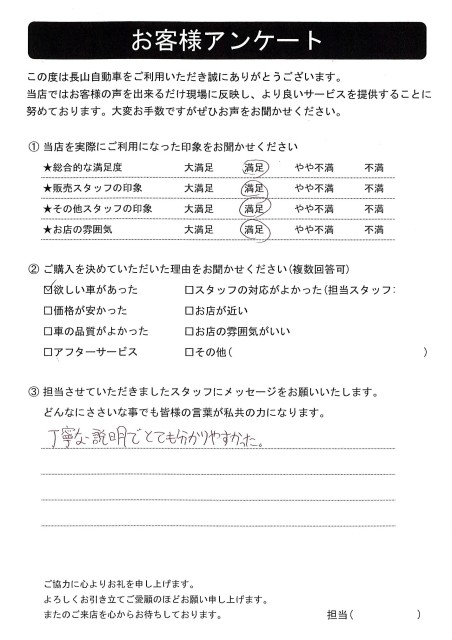 お客様アンケート
この度は長山自動車をご利用いただき誠にありがとうございます。
当店ではお客様の声を出来るだけ現場に反映し、より良いサービスを提供することに
努めております。大変お手数ですがぜひお声をお聞かせください。
① 当店を実際にご利用になった印象をお聞かせください
★総合的な満足度 大満足 満足 やや不満 不満
★販売スタッフの印象 大満足 満足 やや不満 不満
★その他スタッフの印象 大満足 満足 やや不満 不満
★お店の雰囲気 大満足 満足 やや不満 不満
② ご購入を決めていただいた理由をお聞かせください(複数回答可)
☑欲しい車があった □スタッフの対応がよかった(担当スタッフ:
□価格が安かった □お店が近い
□車の品質がよかった □お店の雰囲気がいい
□アフターサービス □その他( )
③ 担当させていただきましたスタッフにメッセージをお願いいたします。
どんなにささいな事でも皆様の言葉が私共の力になります。
丁寧な説明でとても分かりやすかった。
ご協力に心よりお礼を申し上げます。
よろしくお引き立てご愛顧のほどお願い申し上げます。
またのご来店を心からお待ちしております。 担当( )